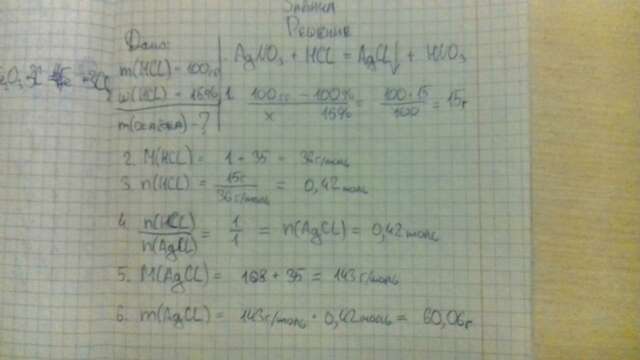 Задача
Решение
Дано:
m(HCL) - 100г
w(HCL) - 15%
m(осадка) - ?
AgNO₃ + HCL = AgCL↓ + HNO₃
1. 100г - 100%
x 15%
= 100·15 / 100 = 15г
2. M(HCL) = 1 + 35 = 36г/моль
3. n(HCL) = 15г / 36г/моль = 0,42моль
4. n(HCL) / n(AgCL) = 1/1 = n(AgCL) = 0,42моль
5. M(AgCL) = 108 + 35 = 143г/моль
6. m(AgCL) = 143г/моль · 0,42моль = 60,06г